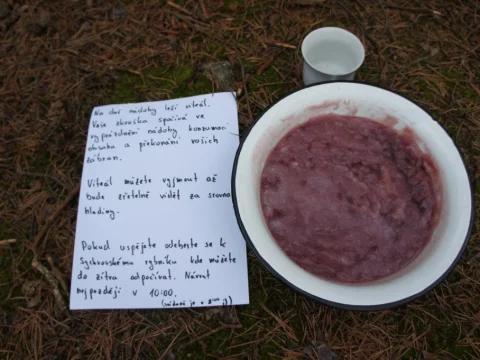 Na dně nádoby leží vitrál.
Vaše zkouška spočívá ve
vyprázdnění nádoby, konzumaci
obsahu a překonání vašich
zábran.
Vitrál můžete vyjmout až
bude zřetelně vidět za srovno
hladiny.
Pokud uspějete odeberte se k
Sychrovskému rybníku kde můžete
do zítra odpočívat. Návrat
nejpozději v 10:00.
(snídaně je v